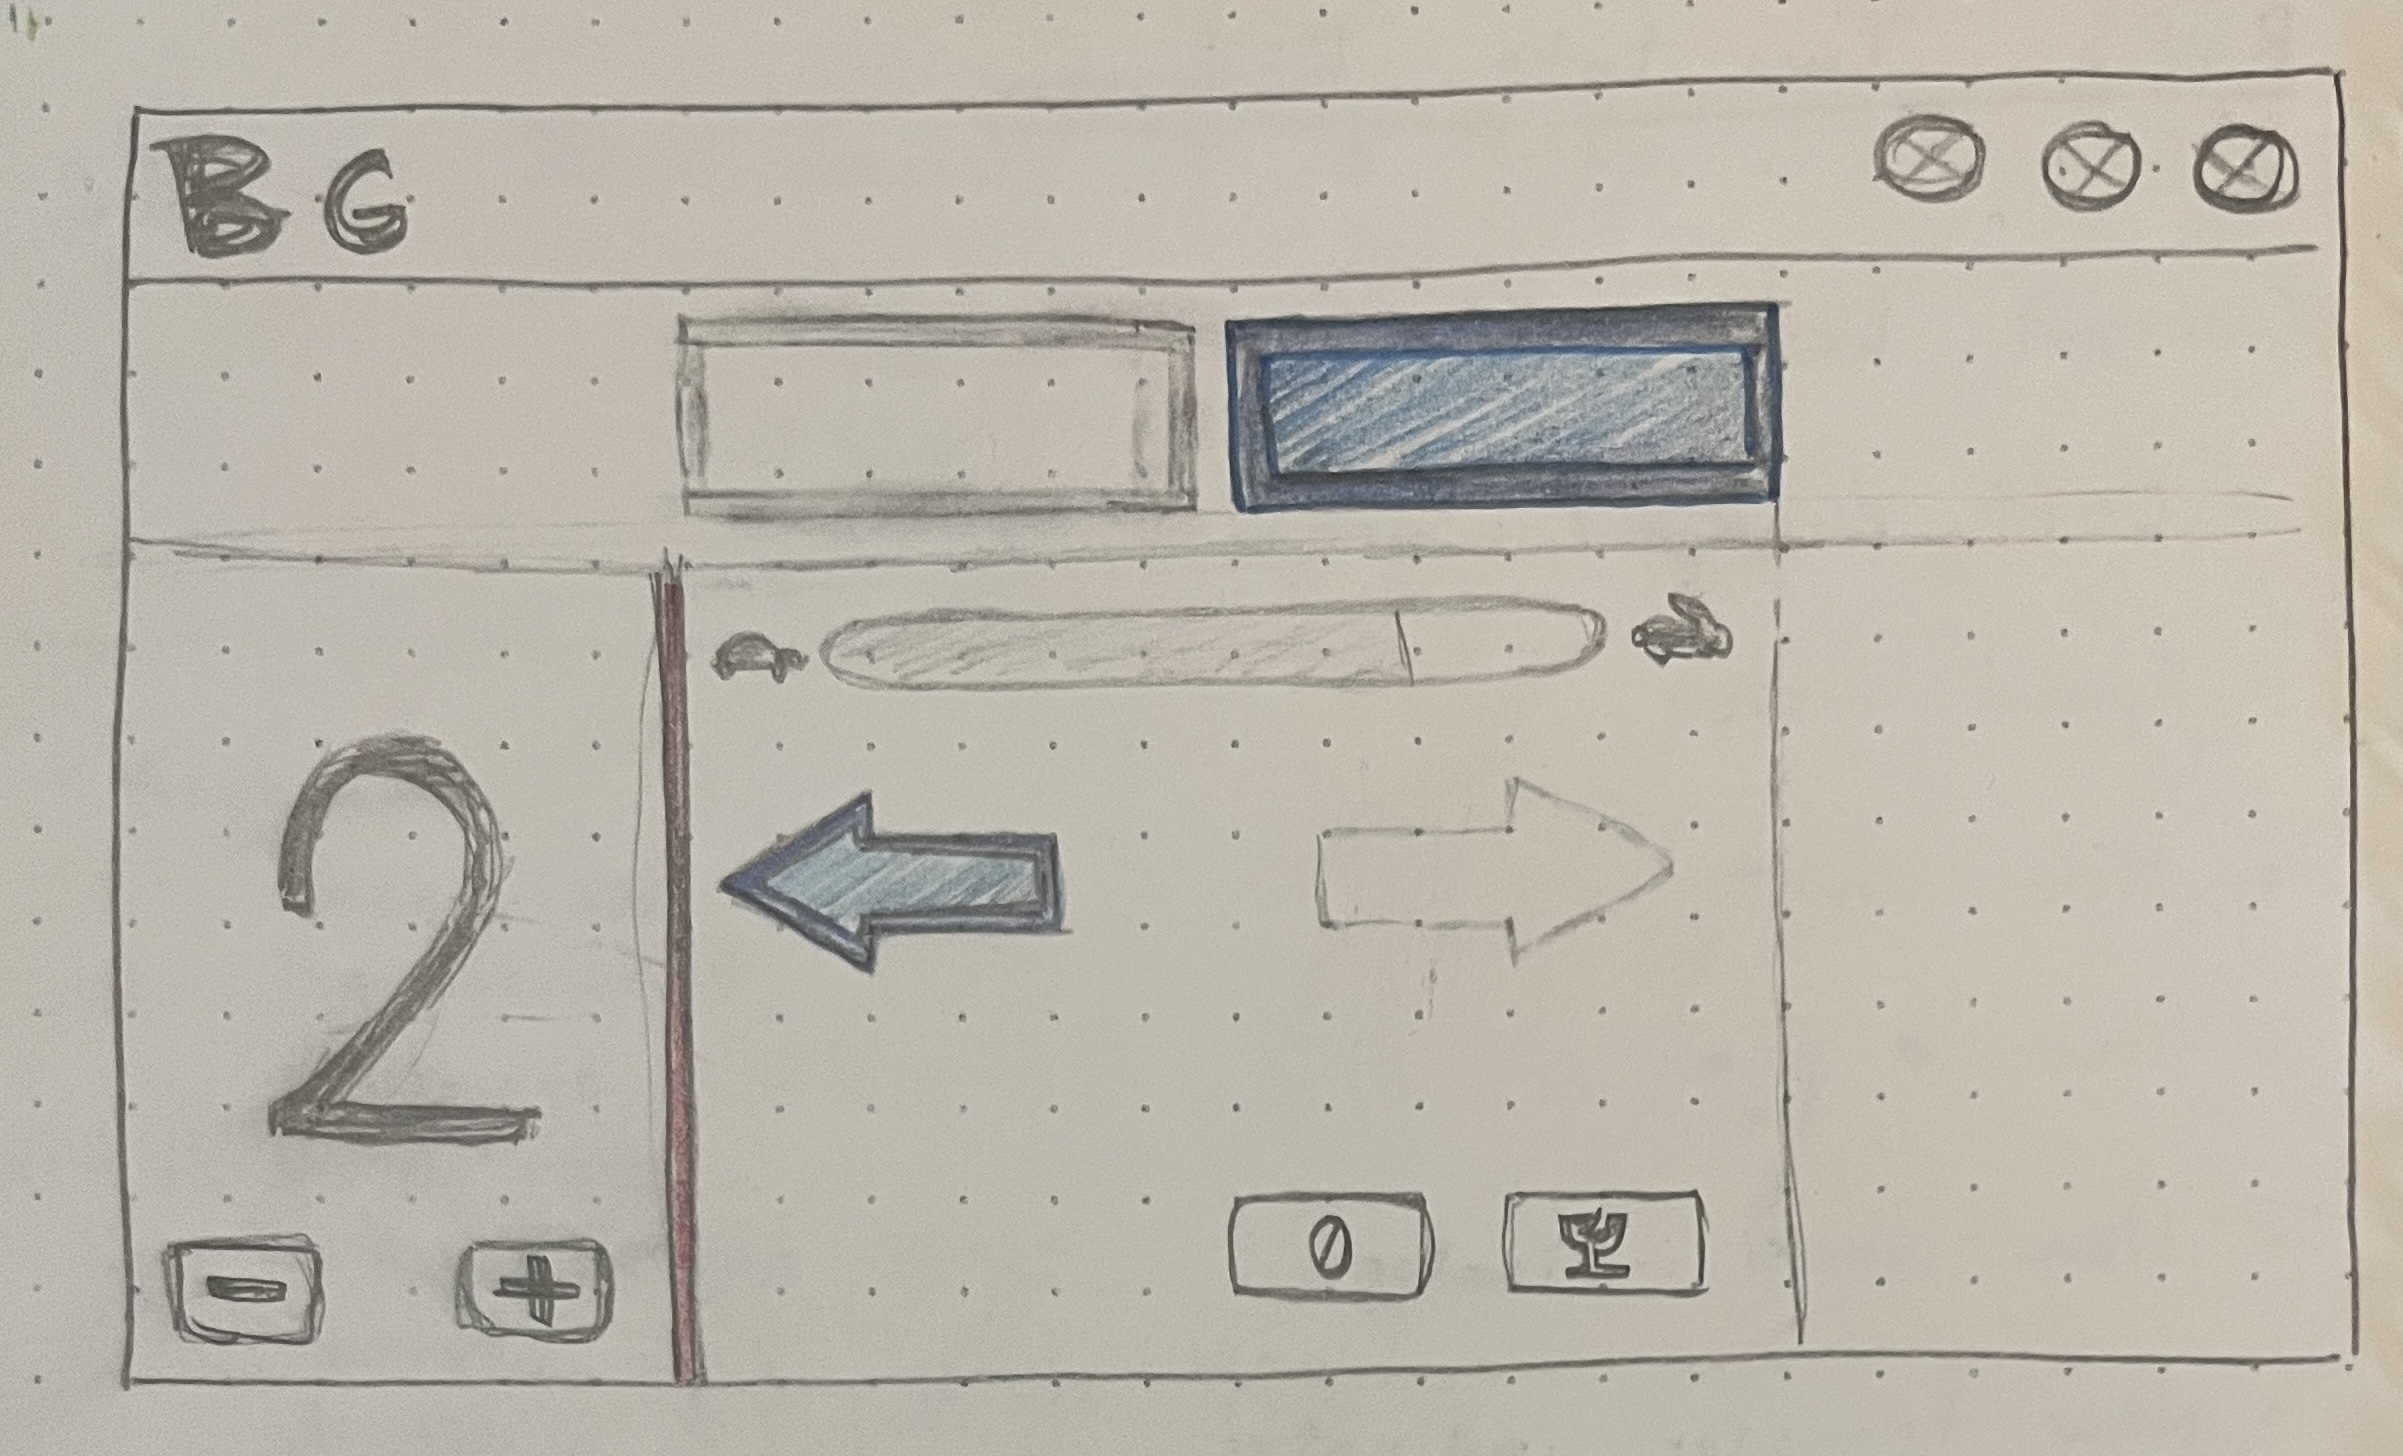 B G
2
- +
0